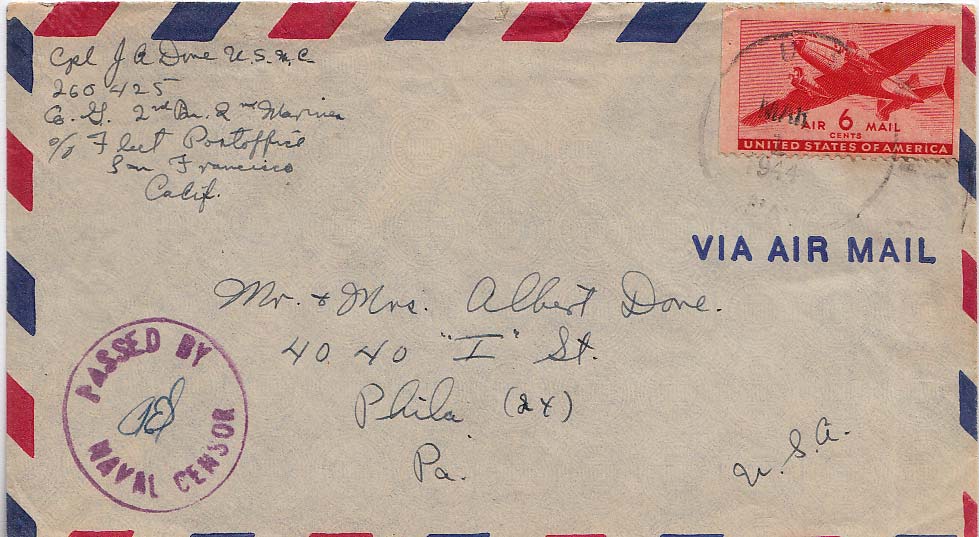 Cpl J A Dove U.S.M.C
260425
Co. G. 2nd Bn. 2nd Marines
c/o Fleet Postoffice
San Francisco
Calif.
U
MAR
1944
AIR 6 MAIL
CENTS
UNITED STATES OF AMERICA
VIA AIR MAIL
Mr. + Mrs. Albert Dove.
4040 "I" St.
Phila (24)
Pa.
U.S.A.
PASSED BY
NAVAL CENSOR